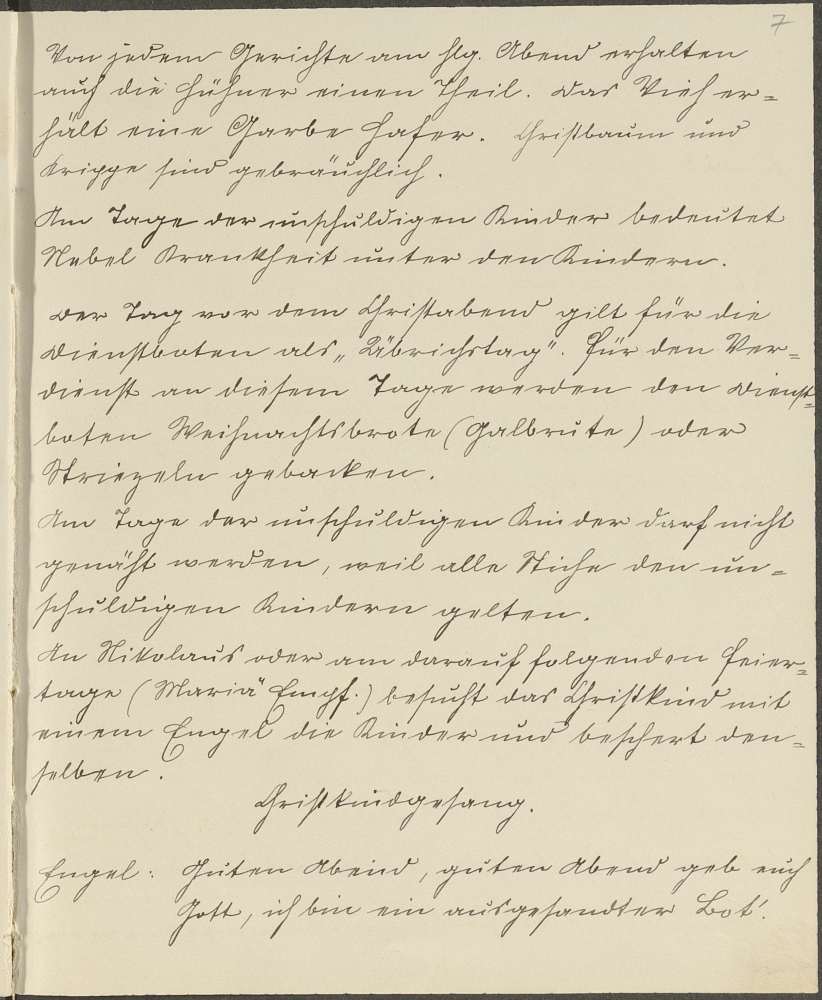 7
Von jedem Gerichte am hlg. Abend erhalten
auch die Hühner einen Theil. Das Vieh er=
hält eine Garbe Hafer. Christbaum und
Krippe sind gebräuchlich.
Am Tage der unschuldigen Kinder bedeutet
Nebel Krankheit unter den Kindern.
Der Tag vor dem Christabend gilt für die
Dienstboten als „Übrichstag". Für den Ver=
dienst an diesem Tage werden den Dienst=
boten Weihnachtsbrote (Galbrute) oder
Striezeln gebacken.
Am Tage der unschuldigen Kinder darf nicht
genäht werden, weil alle Stiche den un=
schuldigen Kindern gelten.
An Nikolaus oder am darauf folgenden Feier=
tage (Mariä Empf.) besucht das Christkind mit
einem Engel die Kinder und beschert den=
selben.
Christkindgesang.
Engel: Guten Abend, guten Abend geb euch
Gott, ich bin ein ausgesandter Bot'.